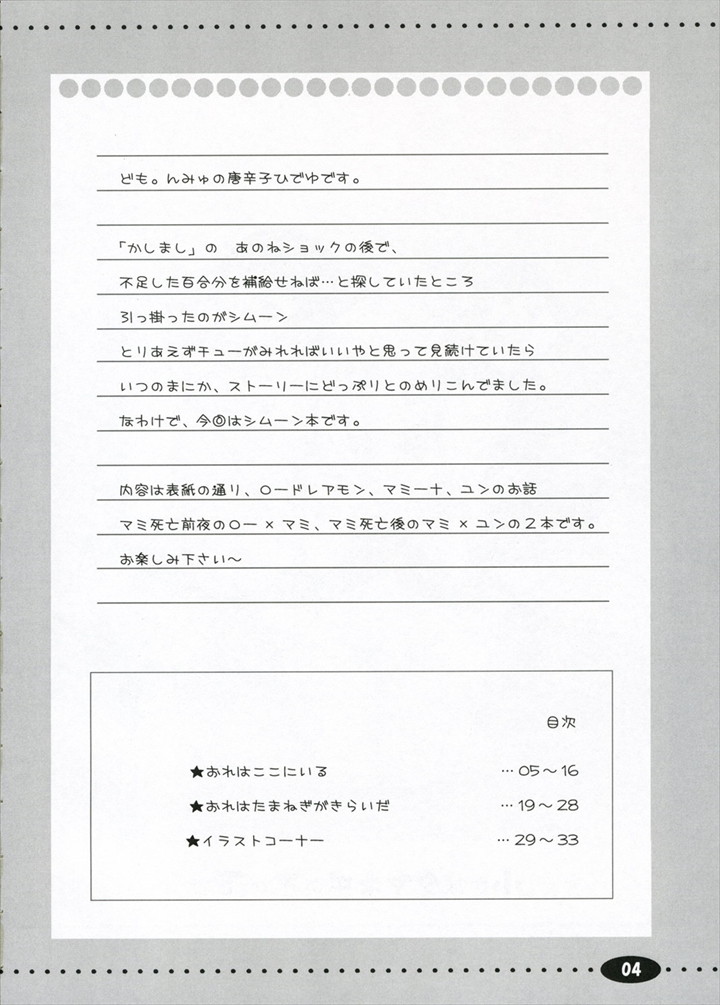 ども。んみゅの唐辛子ひでゆです。
「かしまし」の　あのねショックの後で、
不足した百合分を補給せねば…と探していたところ
引っ掛ったのがシムーン
とりあえずチューがみれればいいやと思って見続けていたら
いつのまにか、ストーリーにどっぷりとのめりこんでました。
なわけで、今回はシムーン本です。
内容は表紙の通り、ロードレアモン、マミーナ、ユンのお話
マミ死亡前夜のロー × マミ、マミ死亡後のマミ × ユンの２本です。
お楽しみ下さい～
目次
★おれはここにいる … 05～16
★おれはたまねぎがきらいだ … 19～28
★イラストコーナー … 29～33
04